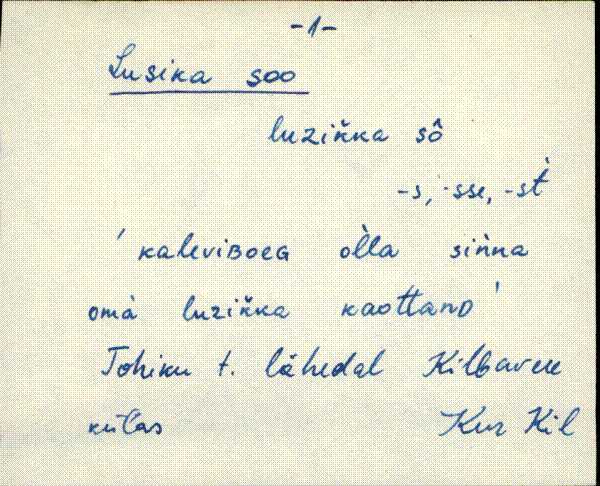 -1-
Lusika soo
luzik̀ka sô
-s, -sse, -st̀
'kaleviBoeG òlla siǹna
omà luzik̀ka kaottanD'
Tohiku t. lähedal Kilbavere
külas Kur Kil